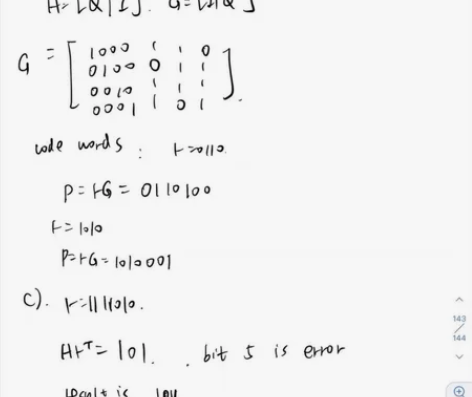 H = [Q | I]. G = [I | Q]
G = [ 1000 1 1 0
0100 0 1 1
0010 1 1 1
0001 1 0 1 ].
code words : t=0110.
P = tG = 0110100
t = 1010
P = tG = 1010001
c). r=
Hr^T = 101. . bit 5 is error
is
143
144